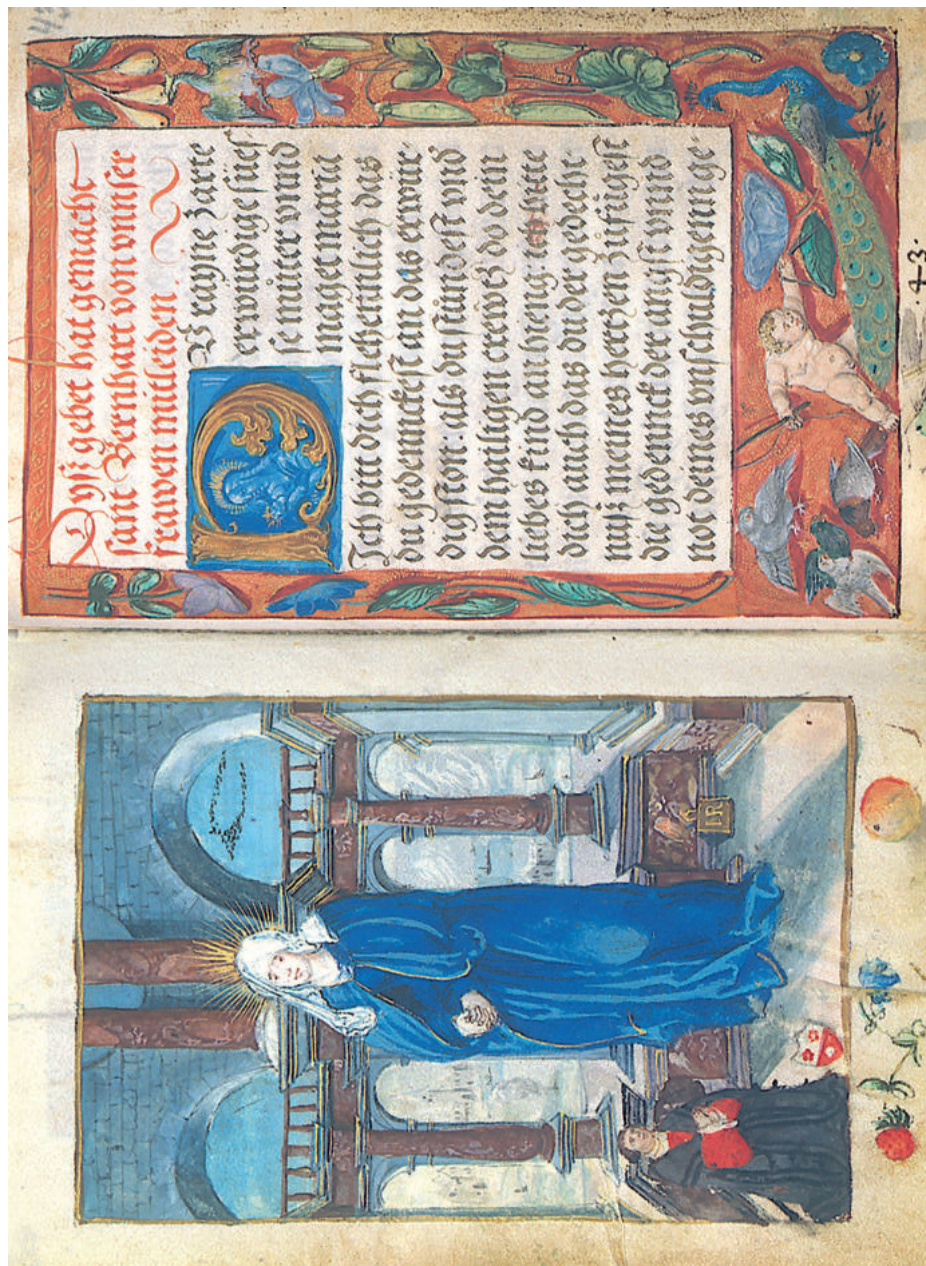 Dysz gebet hat gemacht
sant Bernhart von vnnser
frawen mitleiden.
O rayne zarte
erwurdige sües-
se můter vnnd
maget maria
Ich bin dich flehennlich das
du gedennckest an das erwür-
dig ston: als du stůndest vnd
dem heiligen crewtz do dein
liebes kind an hieng: vnd
dich auch das du der gedecht-
nusz meines hertzen zůfügest
die gedennck der angst vnnd
not deines vnschuldigenn ge-
43.